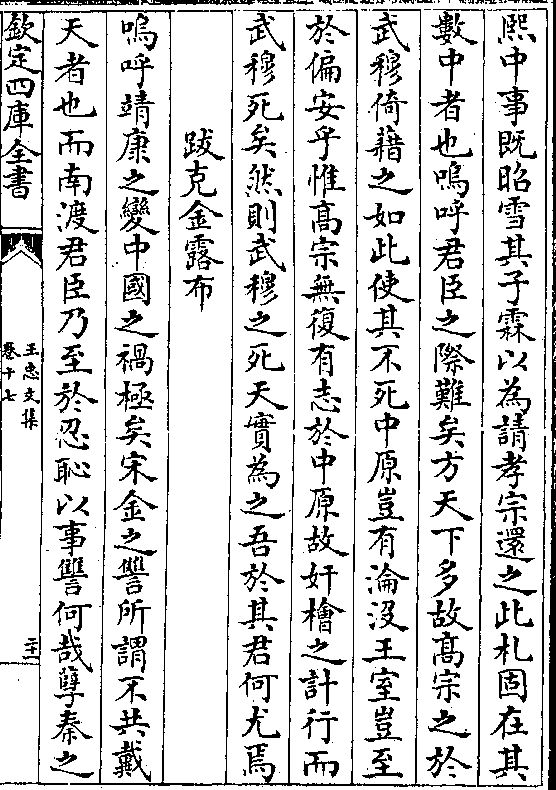 熈中事既昭雪其子霖以為請孝宗還之此札固在其
數中者也嗚呼君臣之際難矣方天下多故髙宗之於
武穆倚藉之如此使其不死中原豈有淪没王室豈至
於偏安乎惟髙宗無復有志於中原故奸檜之計行而
武穆死矣然則武穆之死天實為之吾於其君何尤焉
跋克金露布
嗚呼靖康之變中國之禍極矣宋金之讐所謂不共戴
天者也而南渡君臣乃至於忍恥以事讐何哉孽秦之
欽定四庫全書
王忠文集
卷十七
二十一